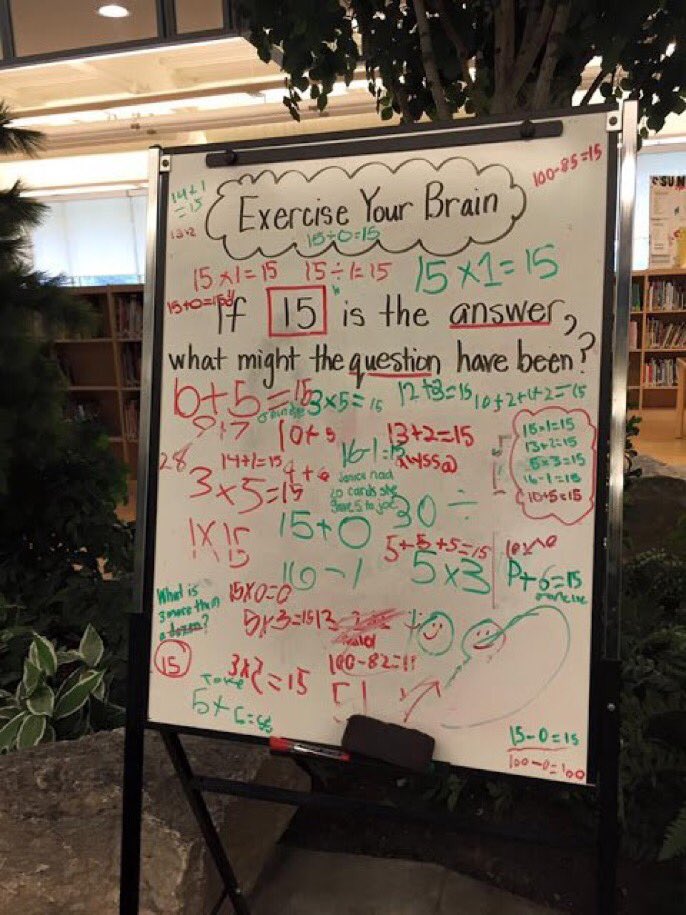 14+1
=15
100-85=15
Exercise Your Brain
15÷0=15
15×1=15 15÷1=15 15×1=15
15+0=15
If 15 is the answer,
what might the question have been?
6+5=15
3×5=15
12+3=15
10+2+1+2=15
9+7
10+5
16-1=15
13+2=15
alyssa
28
14+1=15
4+6
3×5=15
Janice had
20 cards she
gave 5 to joe
15×1=15
13+2=15
5×3=15
16-1=15
10+5=15
1×15
15
15+0
30÷
5+5+5=15
16-1
5×3
P+6=15
What is
3 more than
a dozen?
15
15×0=0
5×3=15
100-82=11
=15
5×
15-0=15
100-0=100